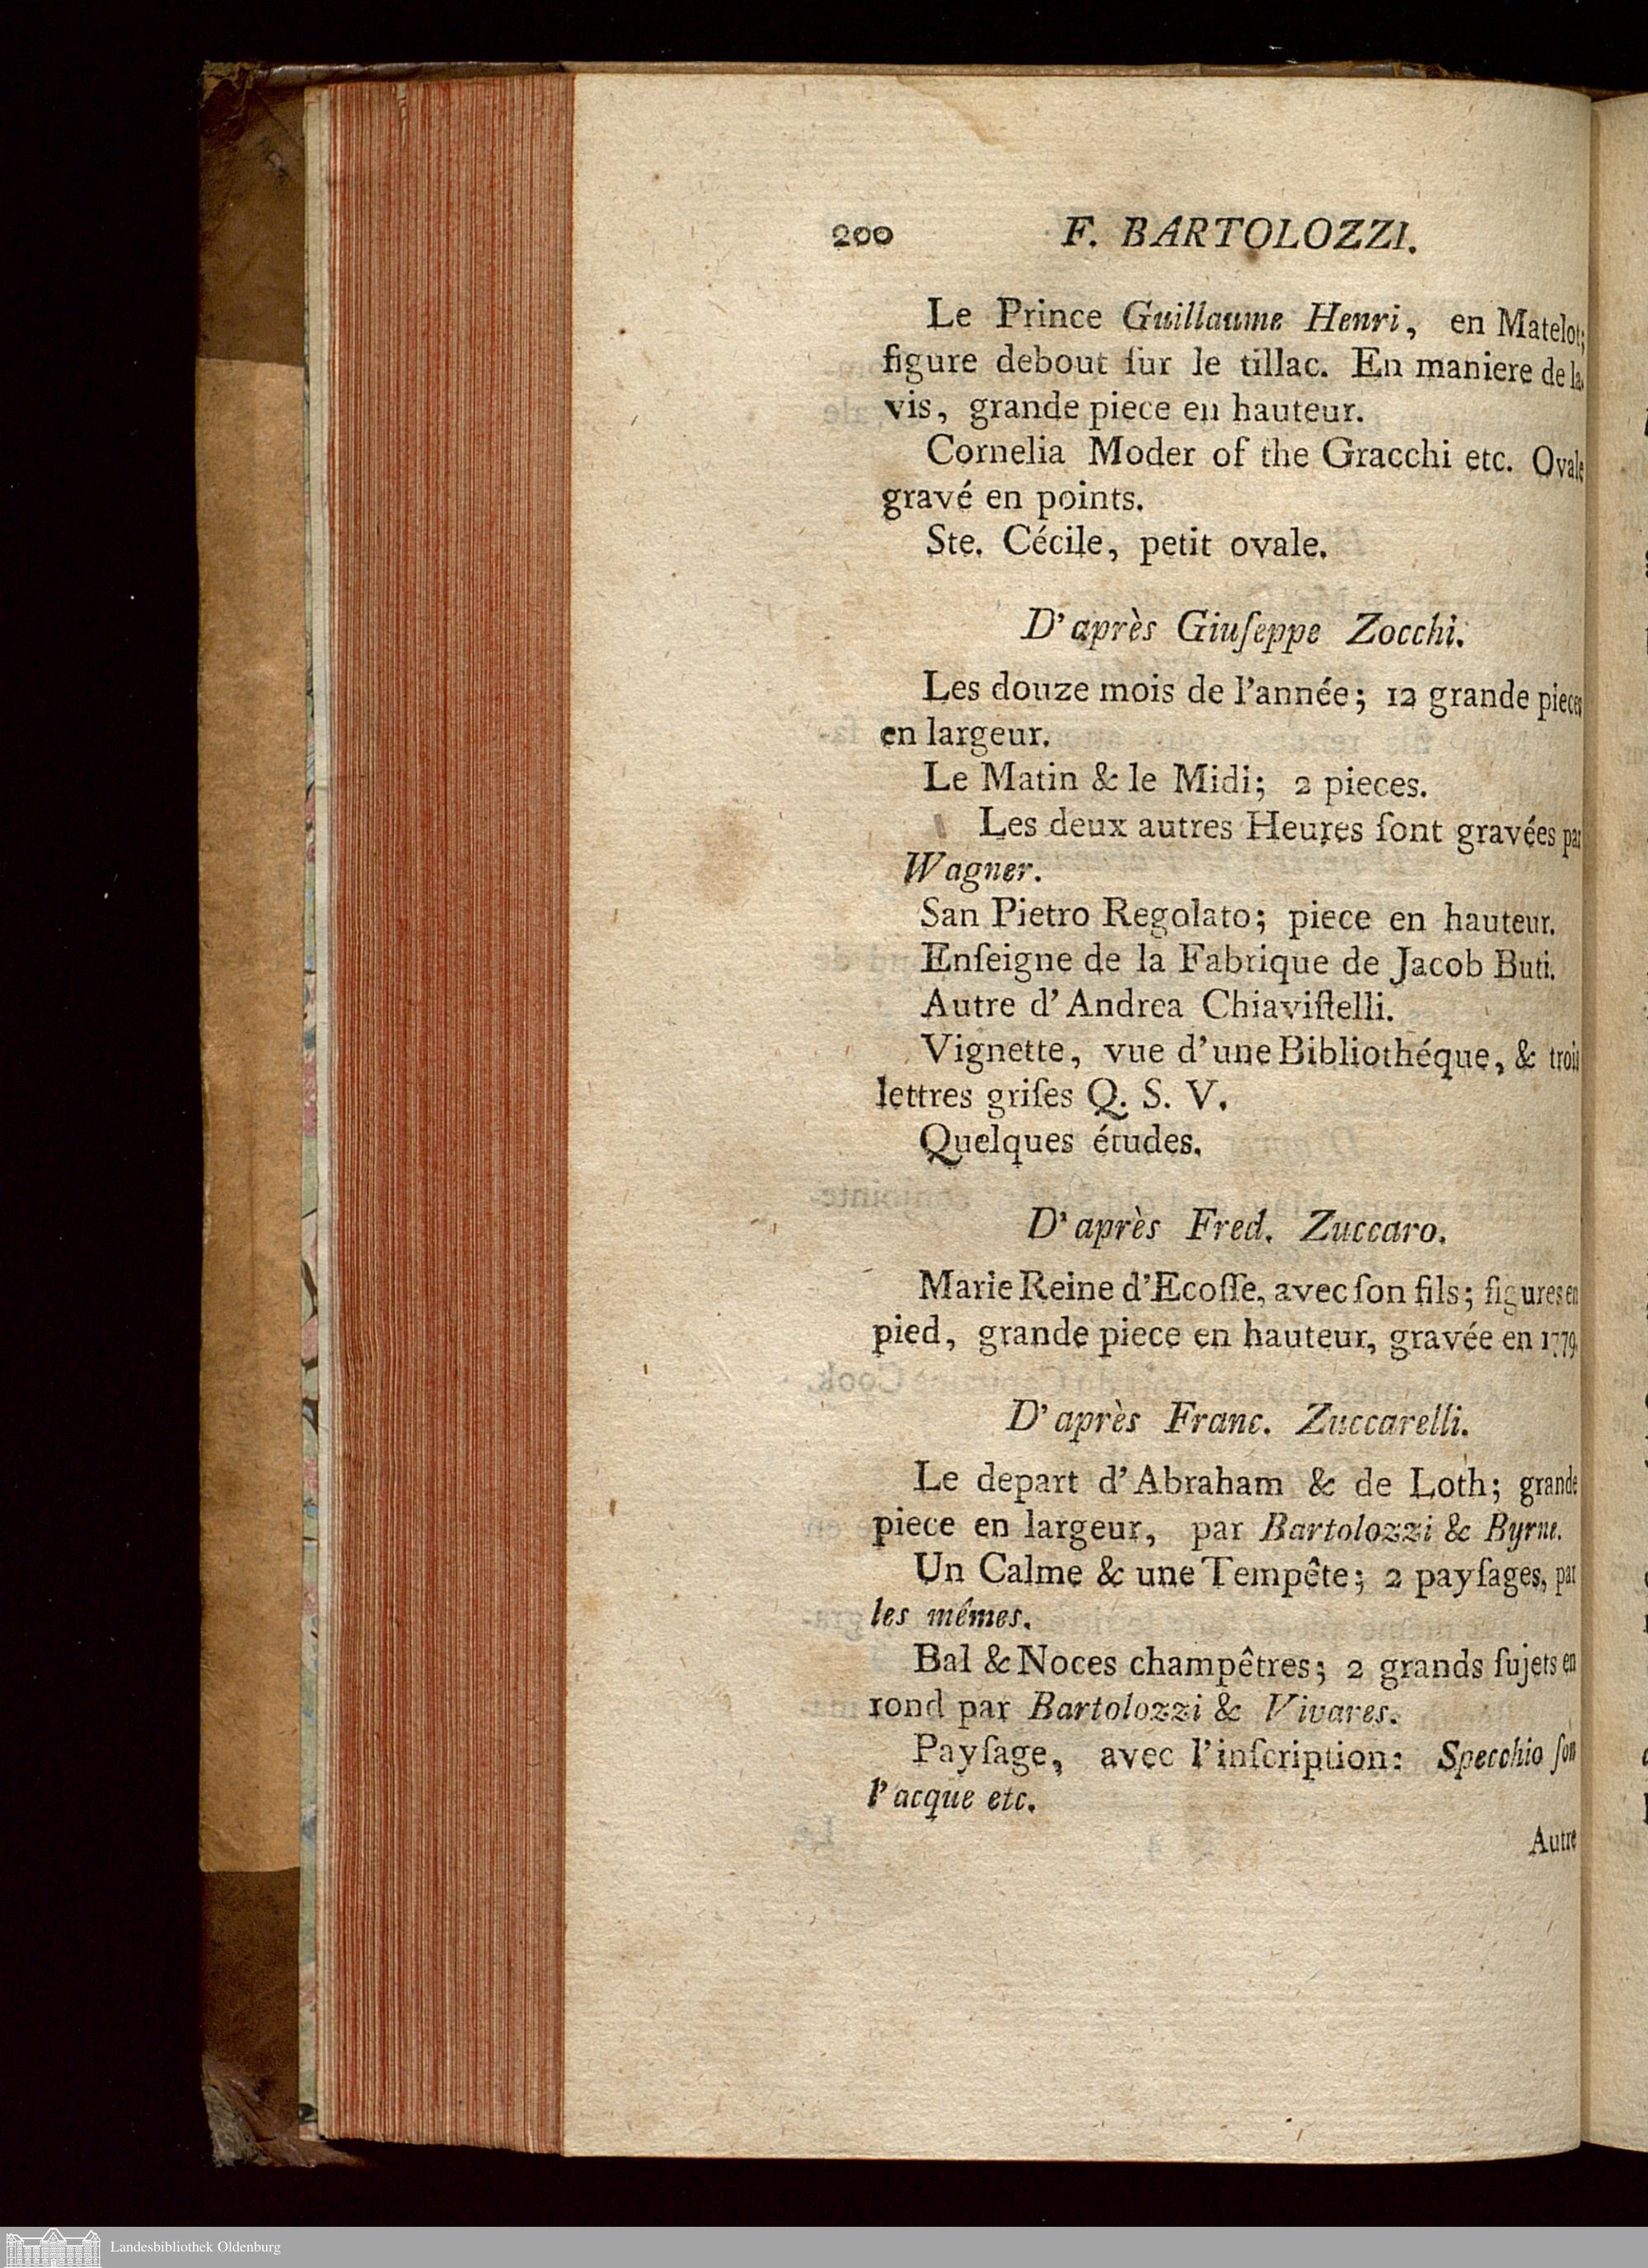 200 F. BARTOLOZZI.
Le Prince Guillaume Henri, en Matelot;
figure debout ſur le tillac. En maniere de la-
vis, grande piece en hauteur.
Cornelia Moder of the Gracchi etc. Ovale
gravé en points.
Ste. Cécile, petit ovale.
D'après Giuſeppe Zocchi.
Les douze mois de l'année; 12 grande pieces
en largeur.
Le Matin & le Midi; 2 pieces.
Les deux autres Heures ſont gravées par
Wagner.
San Pietro Regolato; piece en hauteur.
Enſeigne de la Fabrique de Jacob Buti.
Autre d'Andrea Chiaviſtelli.
Vignette, vue d'une Bibliothéque, & trois
lettres griſes Q. S. V.
Quelques études.
D'après Fred. Zuccaro.
Marie Reine d'Ecoſſe, avec ſon fils; figures en
pied, grande piece en hauteur, gravée en 1779.
D'après Franc. Zuccarelli.
Le depart d'Abraham & de Loth; grande
piece en largeur, par Bartolozzi & Byrne.
Un Calme & une Tempête; 2 payſages, par
les mêmes.
Bal & Noces champêtres; 2 grands ſujets en
rond par Bartolozzi & Vivares.
Payſage, avec l'inſcription: Specchio ſon
l'acque etc.
Autre
Landesbibliothek Oldenburg